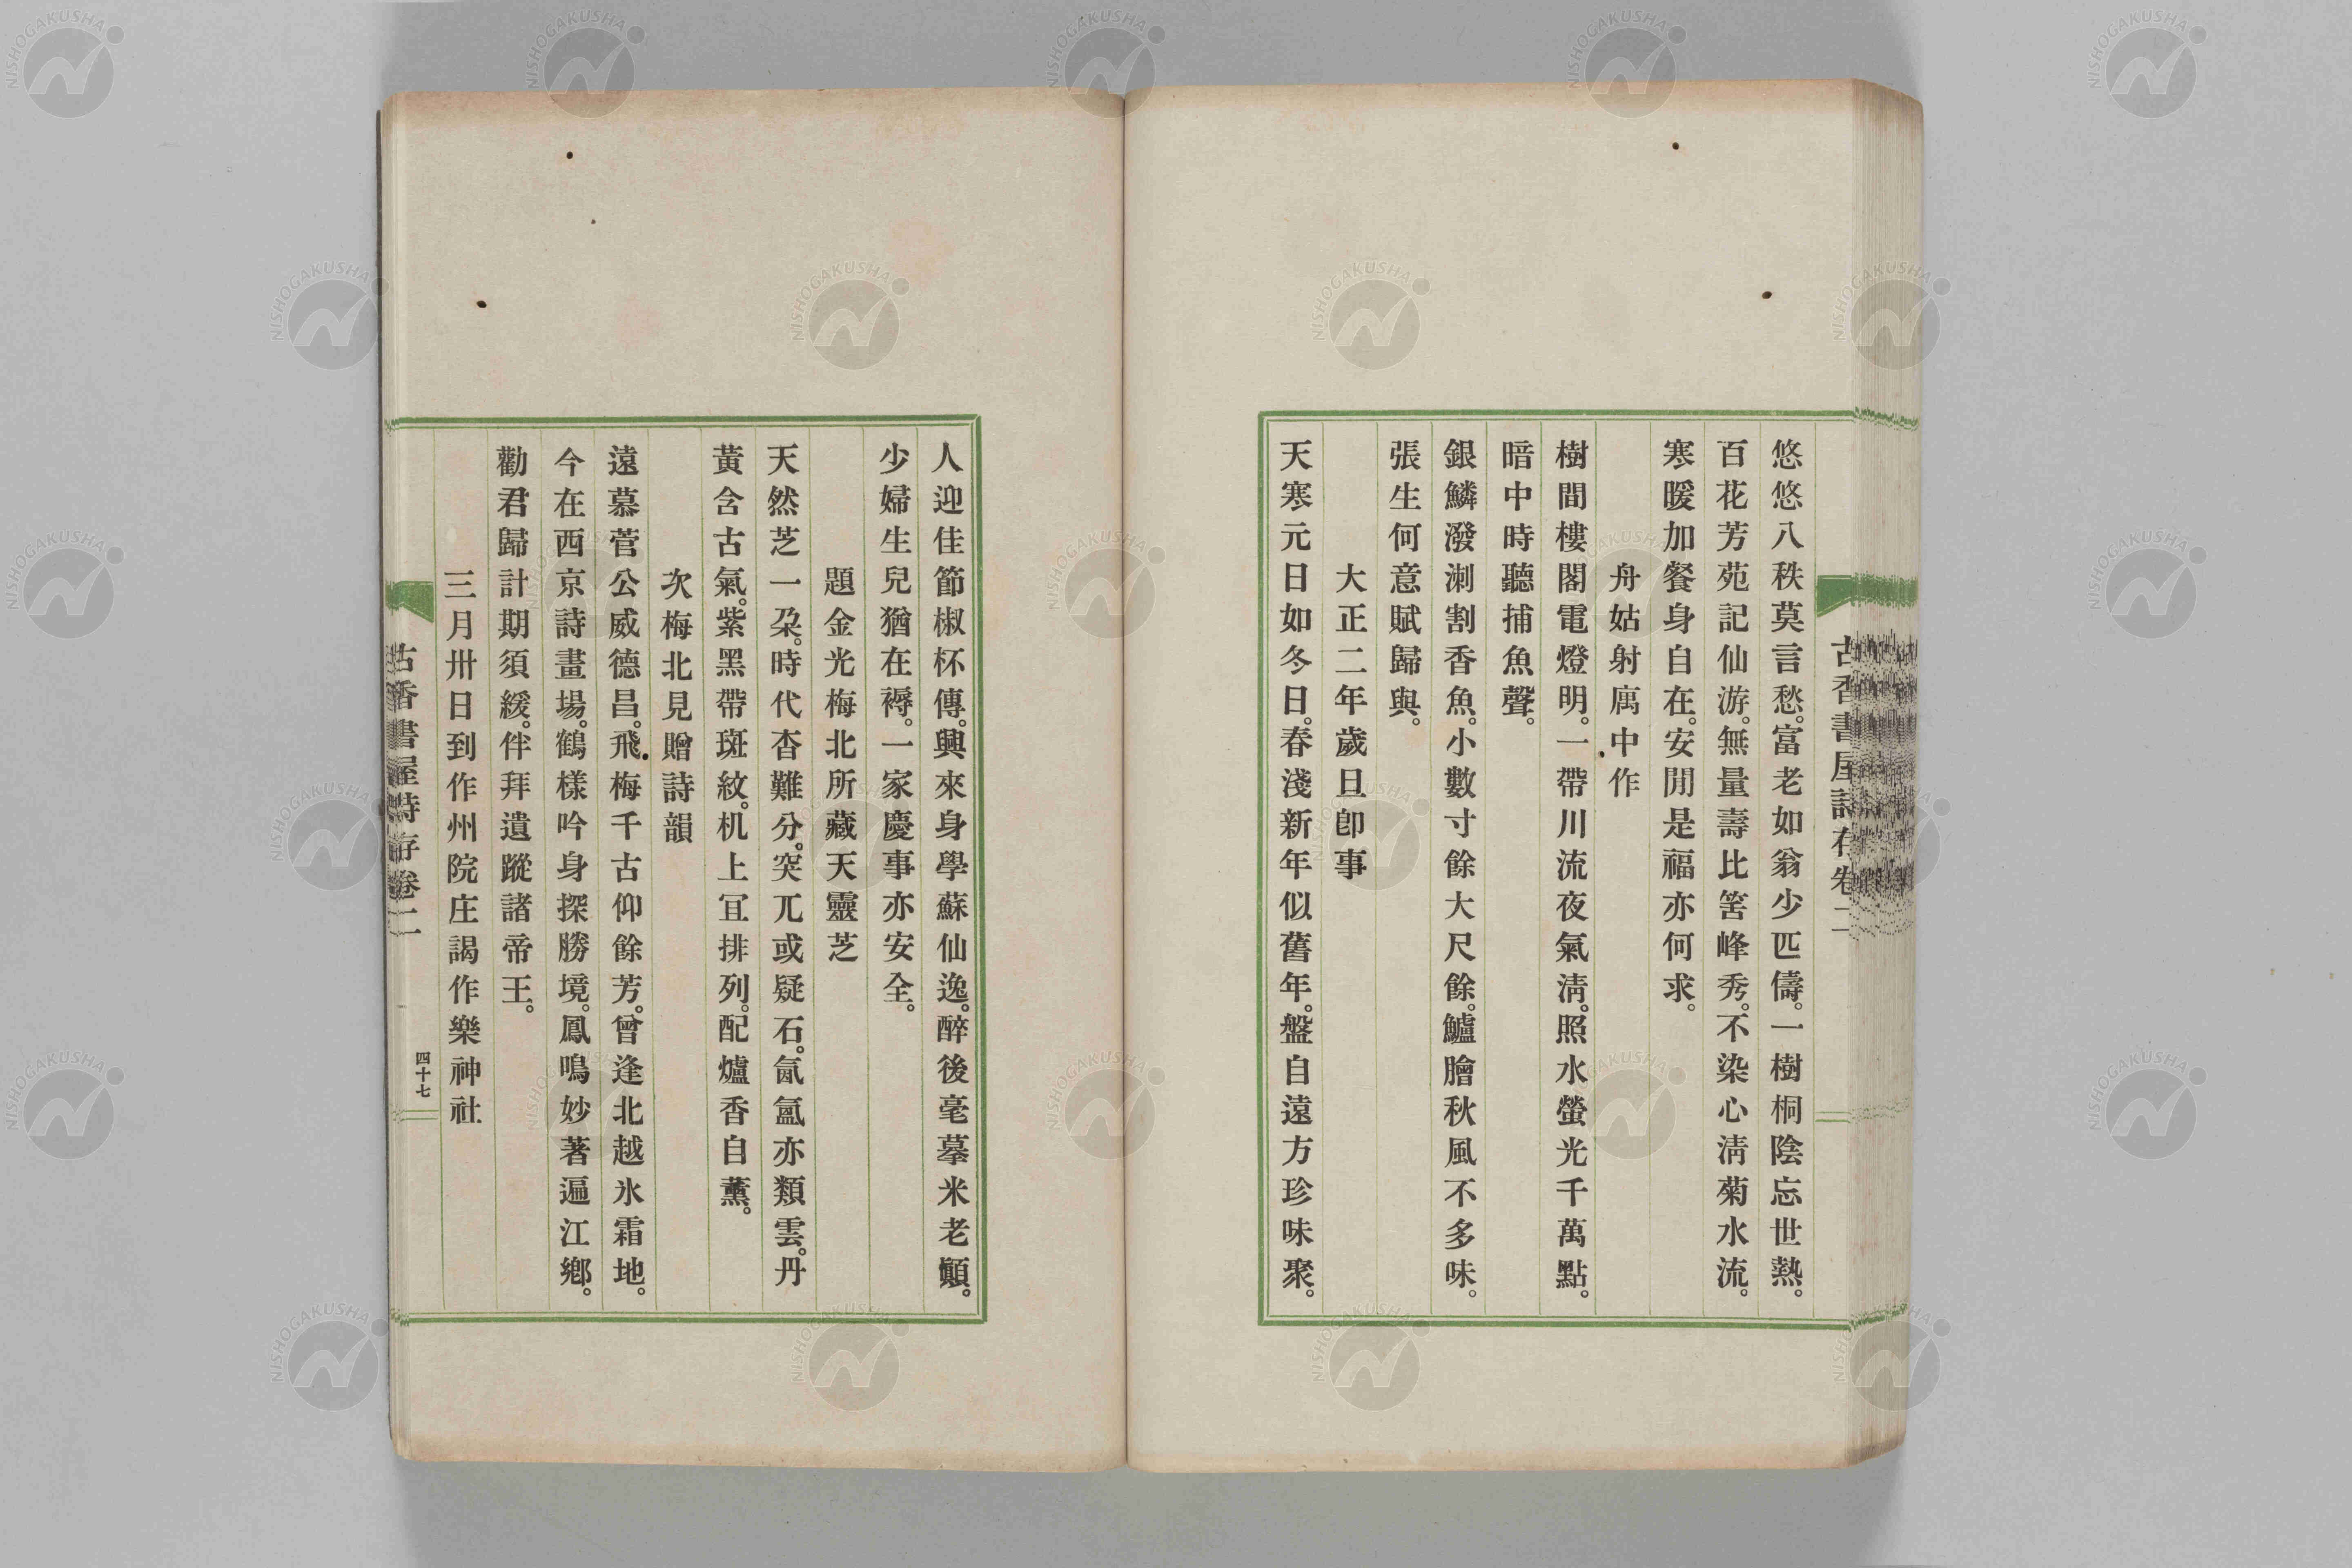 悠悠八秩莫言愁。富老如翁少匹儔。一樹桐陰忘世熱。
百花芳苑記仙游。無量壽比筶峰秀。不染心淸菊水流。
寒暖加餐身自在。安閒是福亦何求。
舟姑射㢏中作
樹間樓閣電燈明。一帶川流夜氣淸。照水螢光千萬點。
暗中時聽捕魚聲。
銀鱗潑溂割香魚。小數寸餘大尺餘。鱸膾秋風不多味。
張生何意賦歸與。
大正二年歲旦卽事
天寒元日如冬日。春淺新年似舊年。盤自遠方珍味聚。
古香書屋詩存卷二
人迎佳節椒杯傳。興來身學蘇仙逸。醉後毫摹米老顚。
少婦生兒猶在褥。一家慶事亦安全。
題金光梅北所藏天靈芝
天然芝一朶。時代杳難分。突兀或疑石。氤氳亦類雲。丹
黃含古氣。紫黑帶斑紋。机上宜排列。配爐香自薰。
次梅北見贈詩韻
遠慕菅公威德昌。飛梅千古仰餘芳。曾逢北越氷霜地。
今在西京詩畫場。鶴樣吟身探勝境。鳳鳴妙著遍江鄕。
勸君歸計期須緩。伴拜遺蹤諸帝王。
三月卅日到作州院庄謁作樂神社
古香書屋詩存卷二
四十七
NISHOGAKUSHA